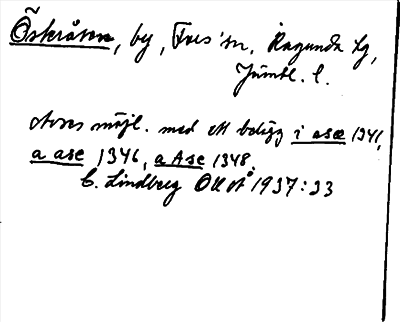 Österåsen, by, Fors' sn, Ragunda tg,
Jämtl. l.
Avses möjl. med ett belägg i ase 1341,
a ase 1346, a Ase 1348.
C. Lindberg OUÅ 1937:33